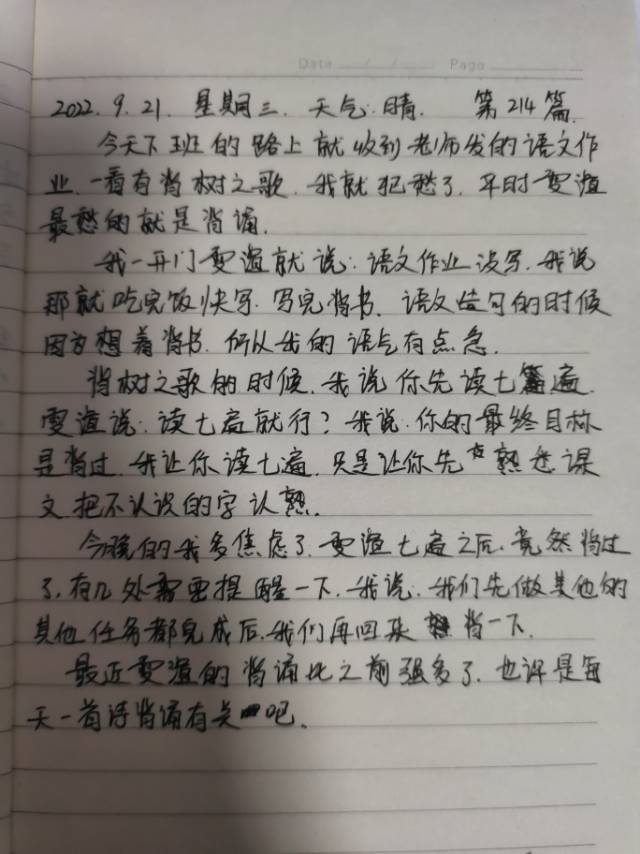 Date / / Page
2022.9.21. 星期三. 天气:晴. 第214篇.
今天下班的路上就收到老师发的语文作
业.一看有背树之歌.我就犯愁了.平时雯渲
最愁的就是背诵.
我一开门雯渲就说:语文作业没写.我说
那就吃完饭快写.写完背书.语文造句的时候
因为想着背书.所以我的语气有点急.
背树之歌的时候.我说你先读七遍.
雯渲说:读七遍就行?我说:你的最终目标
是背过.我让你读七遍.只是让你先熟悉课
文把不认识的字认熟.
今晚的我多焦虑了.雯渲七遍之后.竟然背过
了.有几处需要提醒一下.我说:我们先做其他的
其他任务都完成后.我们再回来背一下.
最近雯渲的背诵比之前强多了.也许是每
天一首诗背诵有关吧.